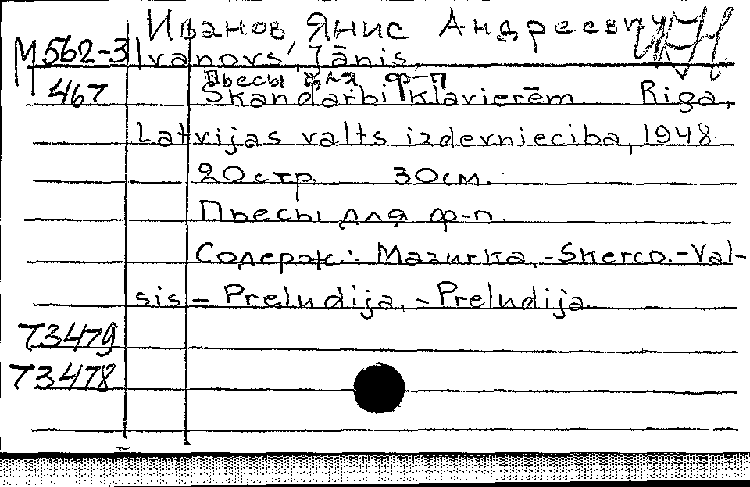 Иванов, Янис Андреевич
М562-3 Ivanovs, Jānis.
Пьесы для ф-п
467 Skandarbi klavierēm Riga,
Latvijas valts izdevnieciba, 1948
20стр. 30см.
Пьесы для ф-п.
Содерж.: Mazurka,-Skerco.-Val-
sis - Preludija, - Preludija
T3479
T3478